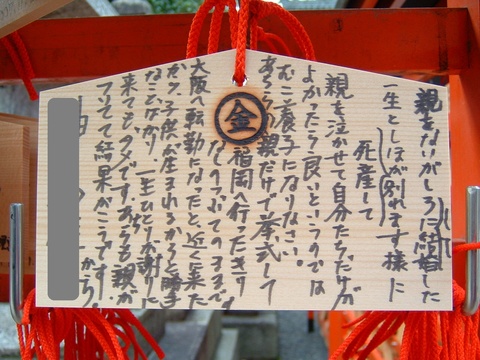 親をないがしろに結婚した
一生としほが別れます様に
死産して
親を泣かせて自分たちだけが
よかったら良いというのでは
むこ養子になりなさい。
あちらの親だけで挙式して
金
福岡へ行ったきり
大阪へ転勤になったと近くに来た
かと子供が生まれるからと勝手
なことばかり 一生ひとりが謝りに
来てもダメです。あちらも親が
ついてて結果がこうです。
から